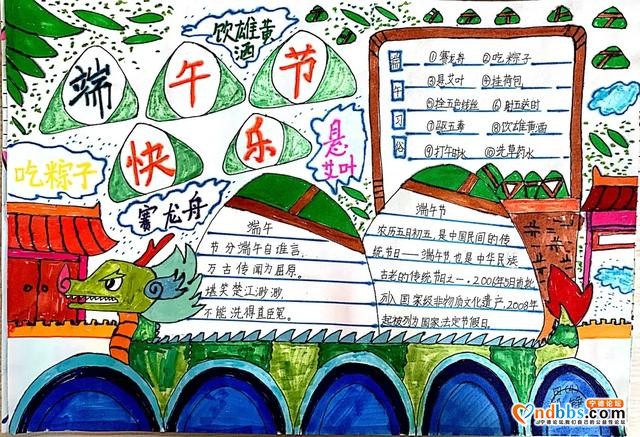 端午节
快乐
饮雄黄
酒
悬
艾叶
吃粽子
赛龙舟
端午习俗
①赛龙舟 ②吃粽子
③悬艾叶 ④挂荷包
⑤拴五色丝线 ⑥射五送时
⑦驱五毒 ⑧饮雄黄酒
⑨打午时水 ⑩洗草药水
端午
节分端午自谁言,
万古传闻为屈原。
堪笑楚江渺渺,
不能洗得直臣冤。
端午节
农历五月初五,是中国民间的传
统节日——端午节也是中华民族
古老的传统节日之一,2006年5月
列入国家级非物质文化遗产,2008年
起被列为国家法定节假日。
宁德论坛
ndbbs.com
宁德论坛,我们自己的公益性论坛